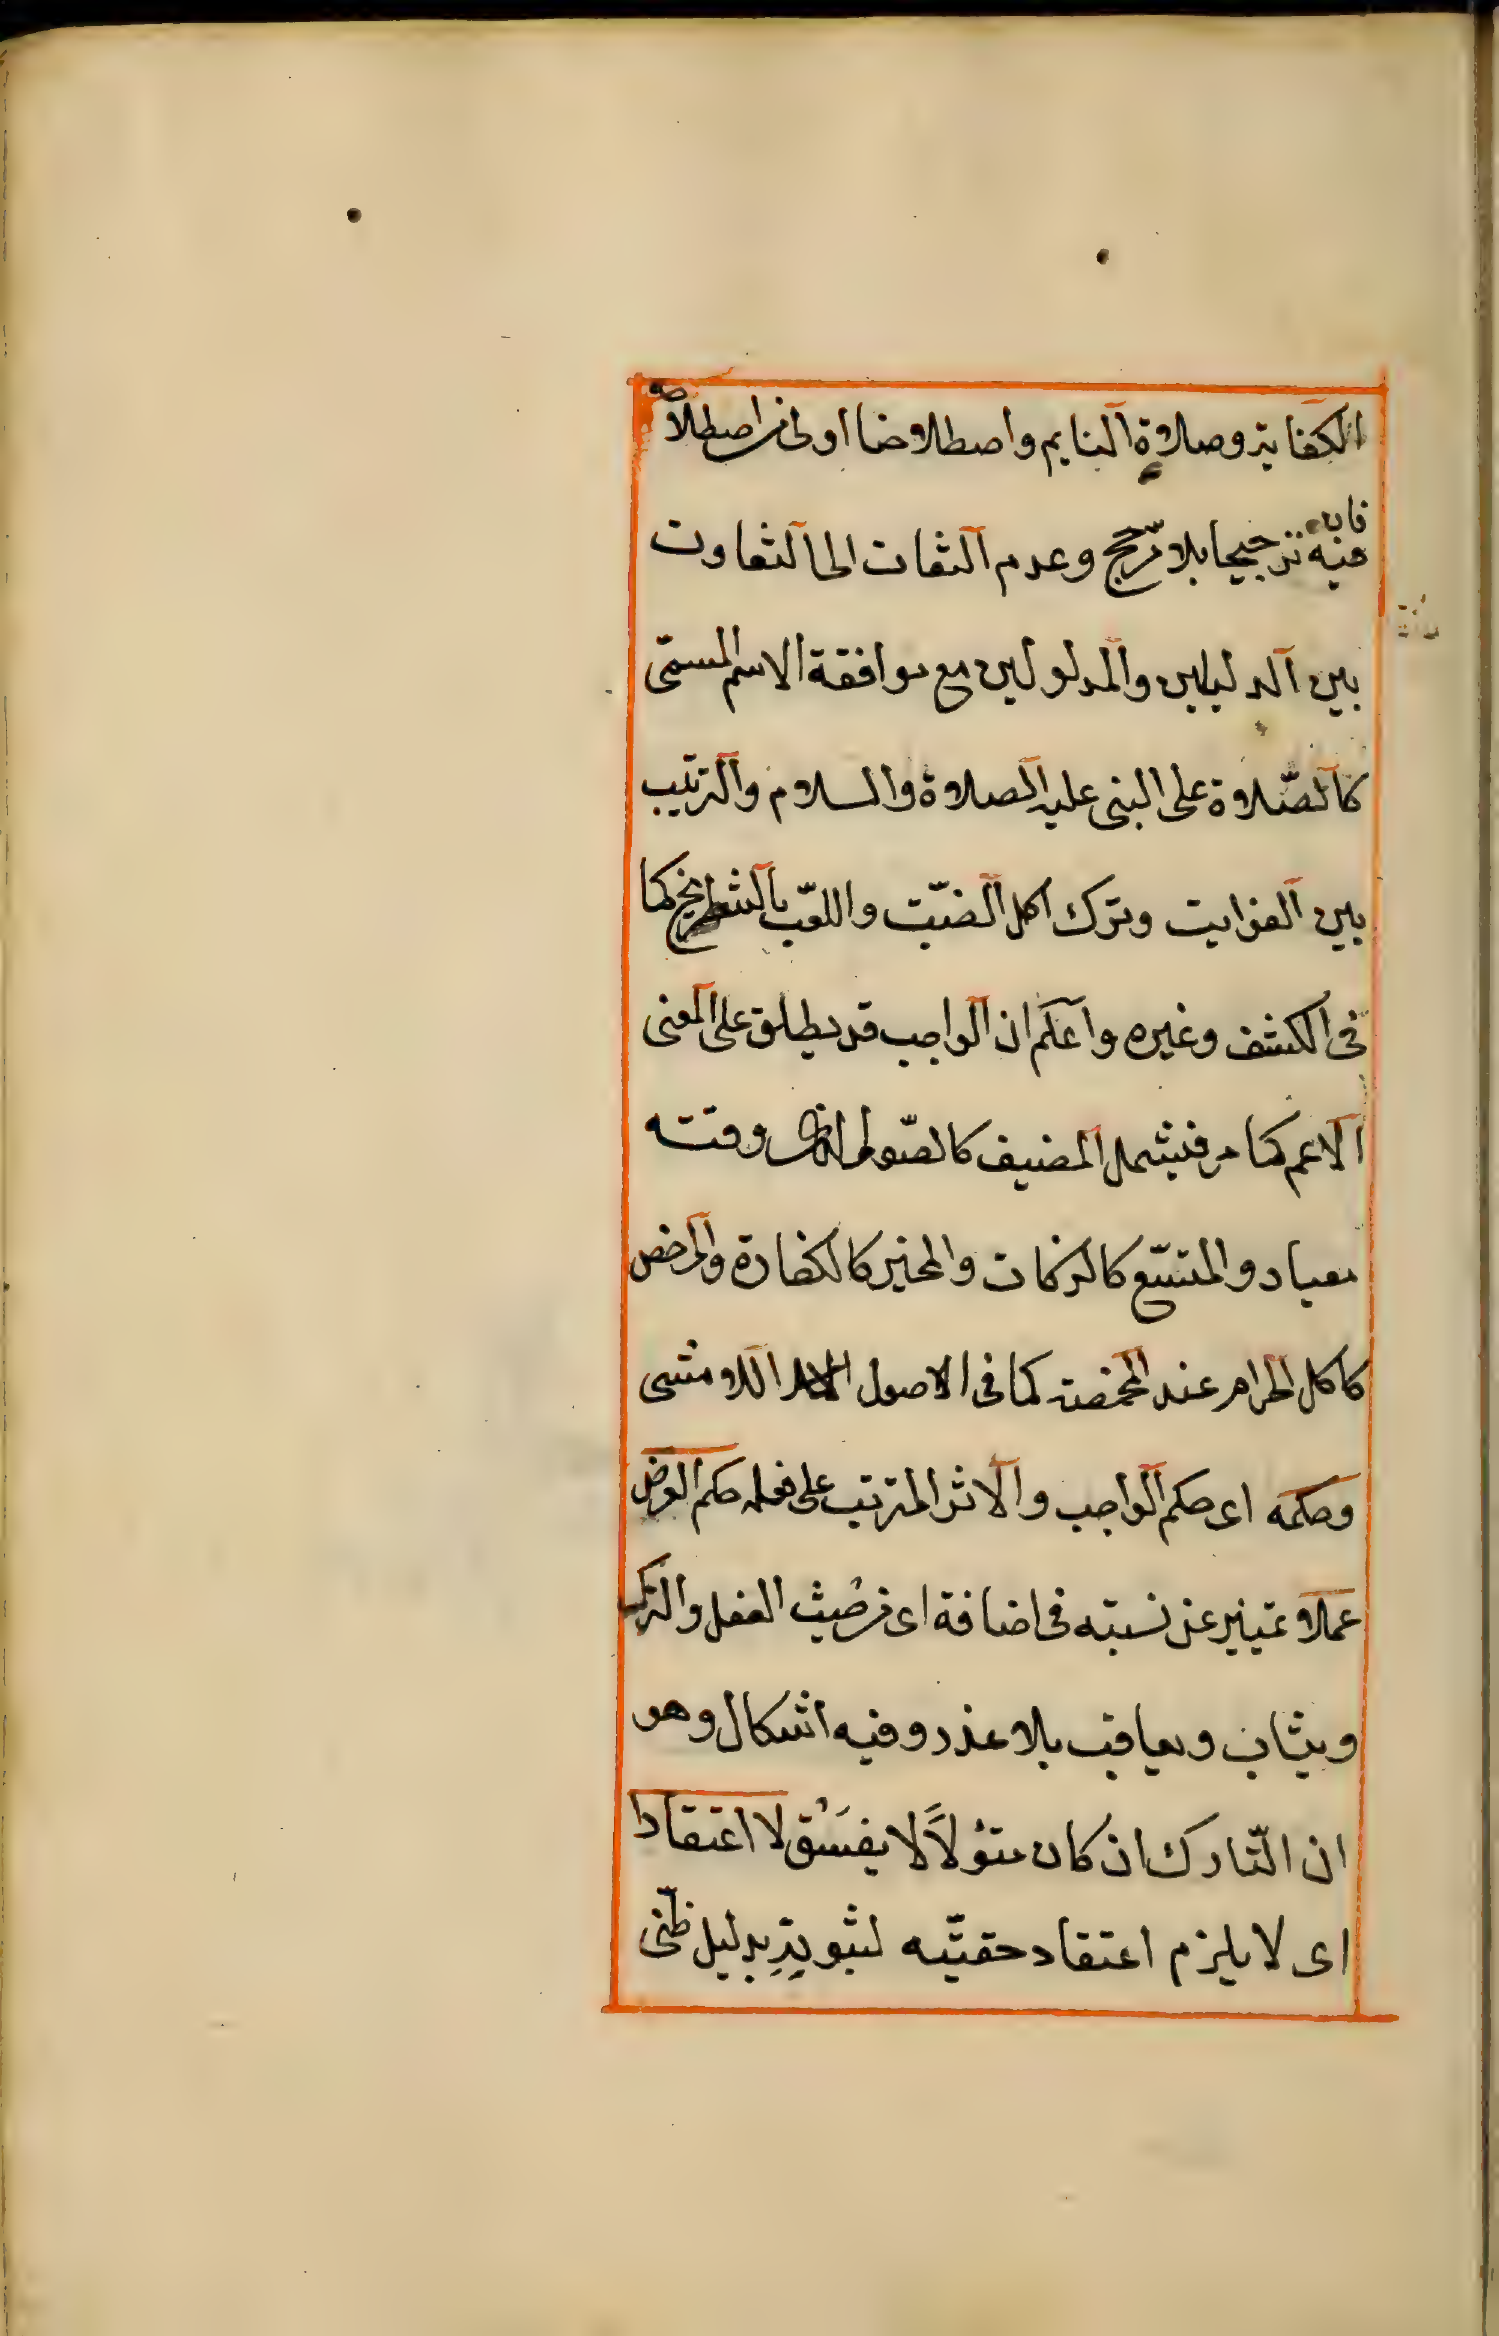 الكفاية وصلاة النايم واصطلاحنا اولى من اصطلاحه
فان
فيه ترجيحا بلا مرجح وعدم التفات الى التفاوت
بين الدليلين والمدلولين مع موافقة الاسم المسمى
كالصّلاة على النبى عليه الصلاة والسلام والترتيب
بين الفوايت وترك اكل الضبّ واللعب بالشطرنج كما
فى الكشف وغيره واعلم ان الواجب قد يطلق على المعنى
الاعم كما مر فيشمل المضيف كالصّوم وقته
معيار والمتسّع كالزكات والمخير كالكفارة والمرخص
كاكل الحرام عند المخمصة كما فى الاصول اللامشى
وحكمه اى حكم الواجب والاثر المترتب على فعله حكم الفرض
عملا تمييز عن نسبته فى اضافة اى من حيث الفعل والترك
ويثاب ويعاقب بلا عذر وفيه اشكال وهو
ان التّارك ان كان متؤلاً لا يفسق لا اعتقادا
اى لا يلزم اعتقاد حقيّته لثبوته بدليل ظنّى